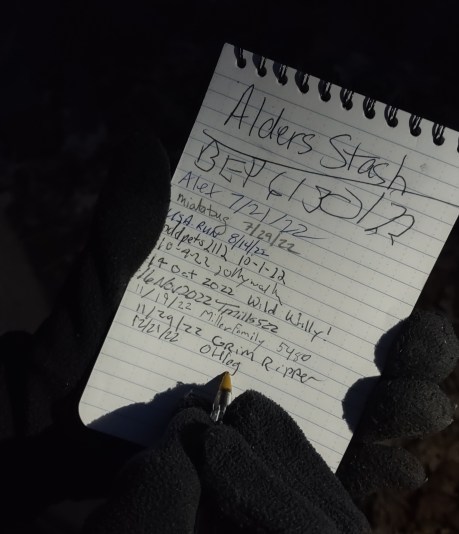 Alders Stash
BEY 6/30/22
Alex 7/21/22
miakatbug 7/29/22
LISA RUN 8/14/22
oddpets2112 10-1-22
10-4-22 jollywalk
14 Oct 2022 Wild Wolly!
16 Nov 2022 Jmills522
11/19/22 Millerfamily 5480
11/29/22 Grim Ripper
12/21/22 OHIng